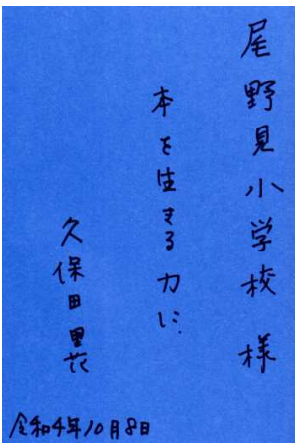 尾野見小学校 様
本を生きる力に.
久保田里花
令和4年10月8日